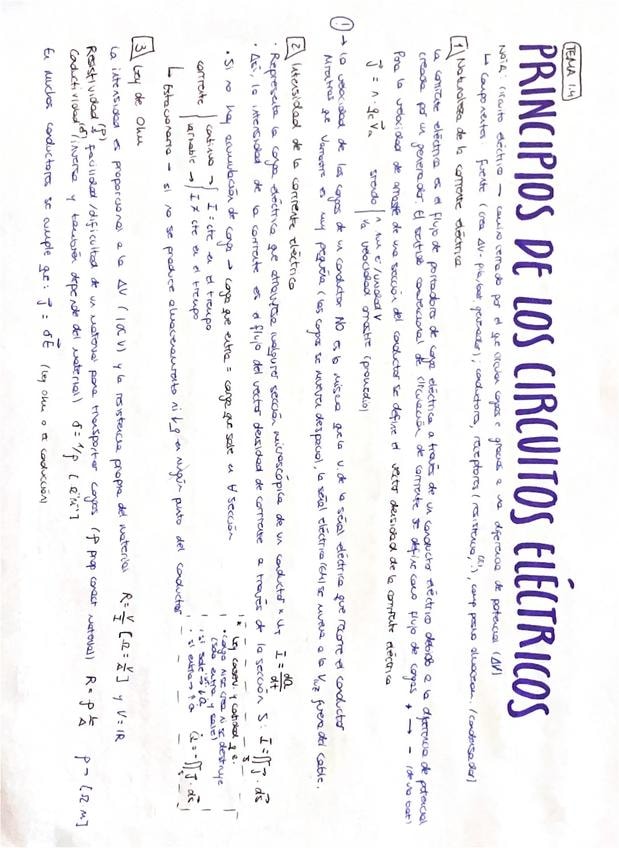 TEMA 1.1
PRINCIPIOS DE LOS CIRCUITOS ELÉCTRICOS
NOTA: circuito eléctrico → camino cerrado por el que circulan cargas e- gracias a una diferencia de potencial (ΔV)
↳ componentes: fuente (crea ΔV - pila, bat. generador), conductores, receptores (resistencia, ), comp. pasivo almacen. (condensador)
1 Naturaleza de la corriente eléctrica
La corriente eléctrica es el flujo de portadores de carga eléctrica a través de un conductor eléctrico debido a la diferencia de potencial
creada por un generador. El sentido convencional de circulación de corriente se define como flujo de cargas + → - (de una bat)
Para la velocidad de arrastre de una sección del conductor se define el vector densidad de la corriente eléctrica
J = n · qe Va siendo n: num e-/unidad V
Va: velocidad arrastre (promedio)
! → La velocidad de las cargas de un conductor NO es la misma que la v. de la señal eléctrica que recorre el conductor
Mientras que Varrastre es muy pequeña (las cargas se mueven despacio), la señal eléctrica (EM) se mueve a la Vluz fuera del cable.
2 Intensidad de la corriente eléctrica
· Representa la carga eléctrica que atraviesa cualquier sección microscópica de un conductor x uT I = dQ/dt
· Así, la intensidad de la corriente es el flujo del vector densidad de corriente a través de la sección S: I = ∬ J · ds
· Si no hay acumulación de carga → carga que entra = carga que sale en ∀ sección
corriente continua → I = cte en el tiempo
variable → I ≠ cte en el tiempo
↳ Estacionaria → si no se produce almacenamiento ni en ningún punto del conductor
* Ley conserv. y continuidad q e-:
· carga ni se crea ni se destruye
(solo entra y sale)
· si sale → ↓ Q
· si entra → ↑ Q
3 Ley de Ohm
La intensidad es proporcional a la ΔV (I α V) y la resistencia propia del material R = V/I [Ω = V/A] y V = IR
Resistividad (ρ) facilidad/dificultad de un material para transportar cargas (ρ prop. conser material) R = ρ L/A ρ → [Ω m]
Conductividad (σ) (inversa y también depende del material) σ = 1/ρ [Ω⁻¹m⁻¹]
En muchos conductores se cumple que: J = σE (ley Ohm o de conducción)